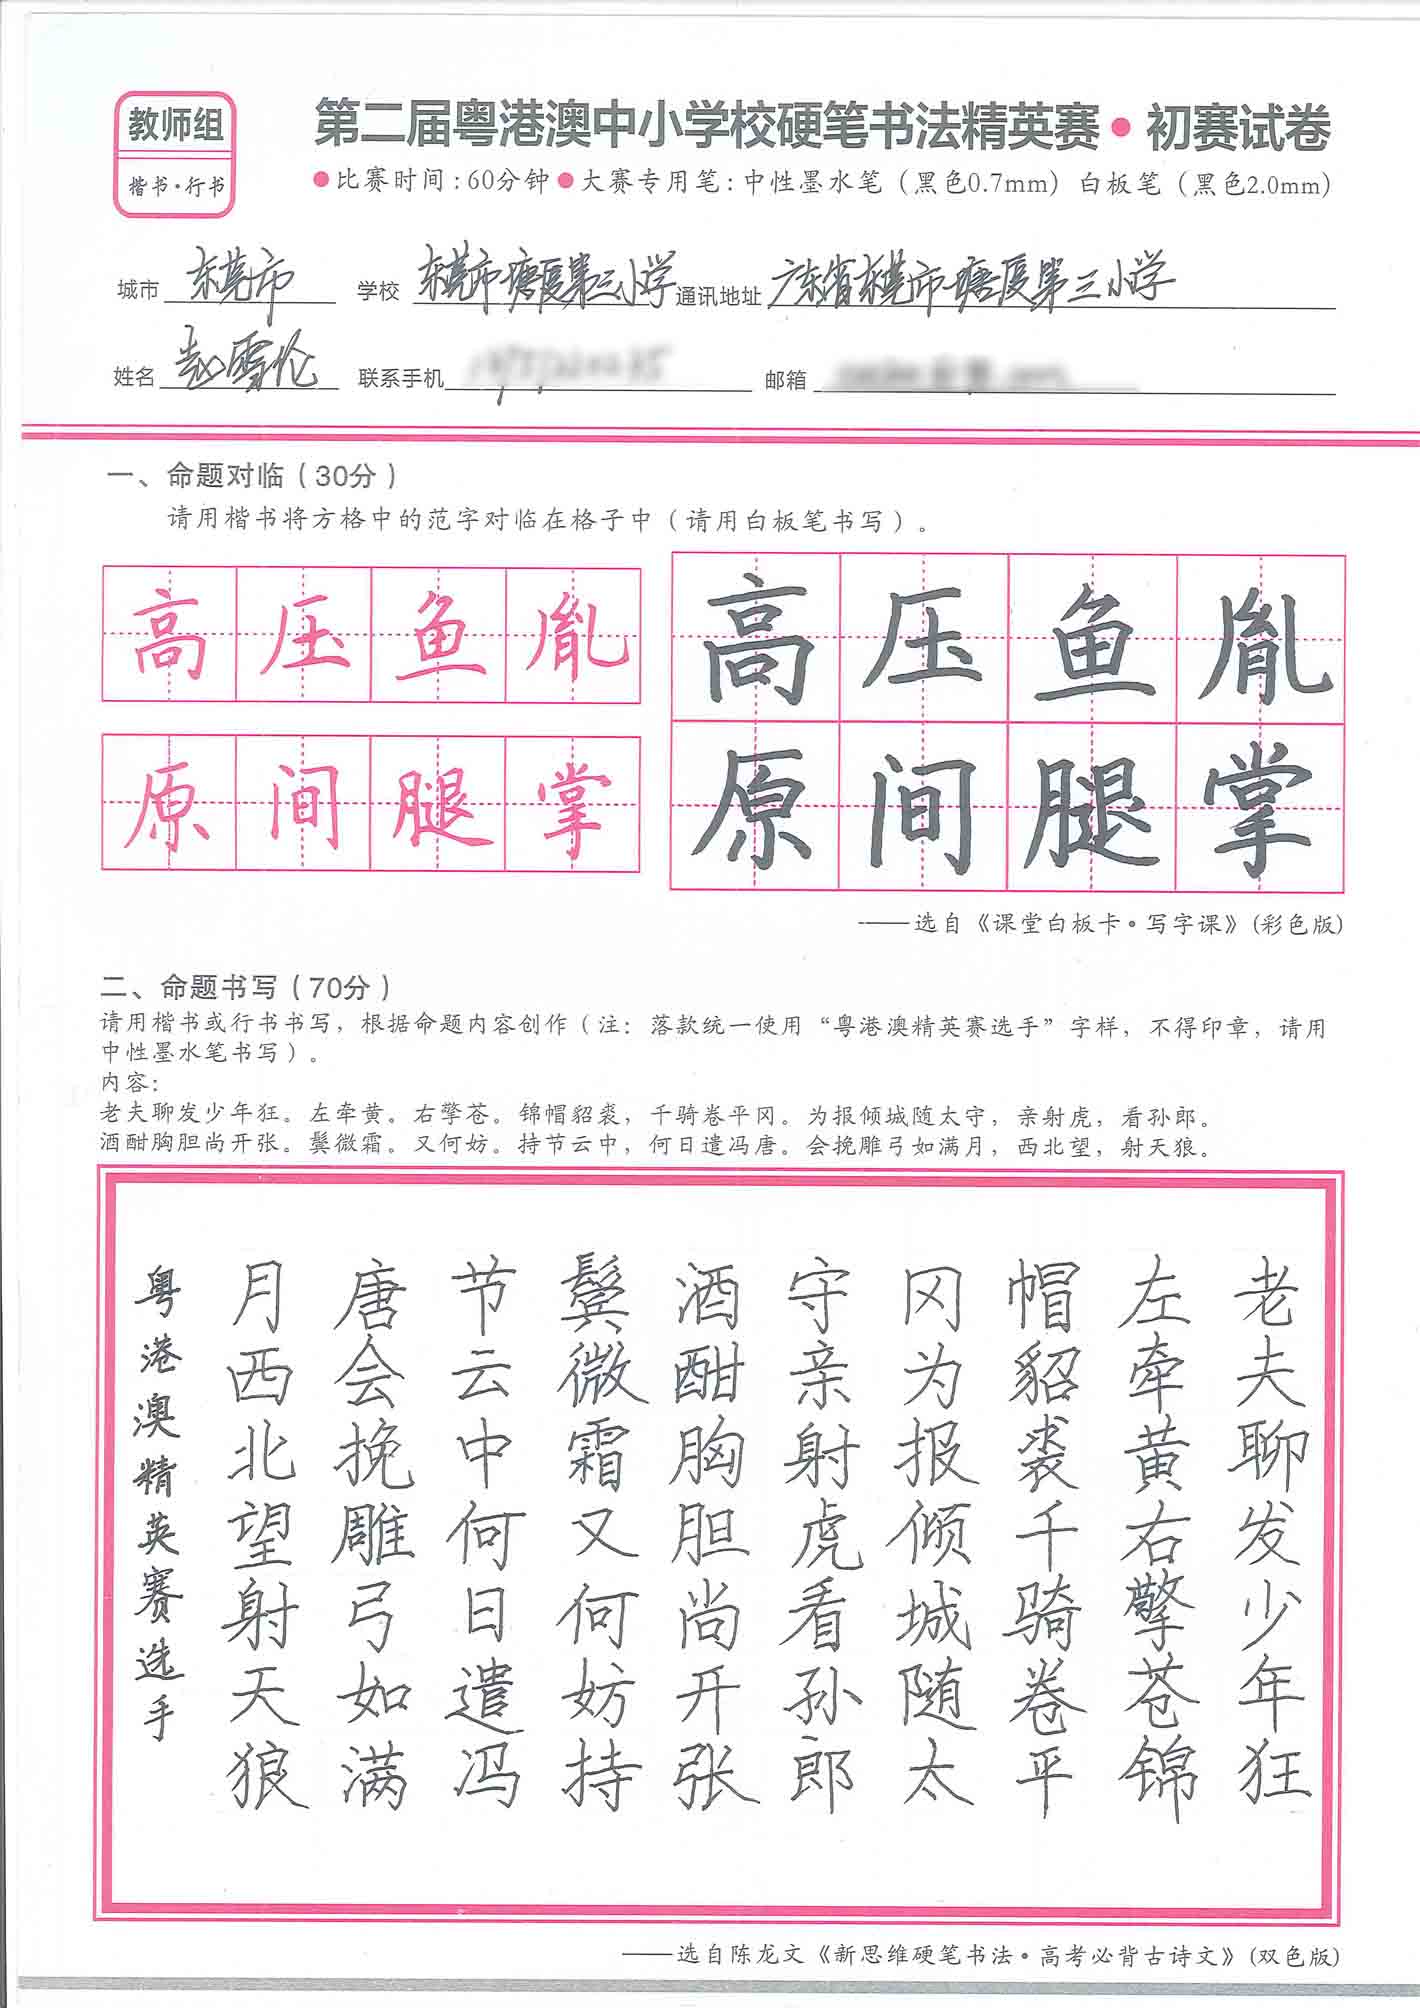 教师组
楷书·行书
第二届粤港澳中小学校硬笔书法精英赛·初赛试卷
●比赛时间:60分钟●大赛专用笔:中性墨水笔（黑色0.7mm）白板笔（黑色2.0mm）
城市 东莞市 学校 东莞市塘厦第三小学 通讯地址 广东省东莞市塘厦第三小学
姓名 赵雪伦 联系手机 邮箱
一、命题对临（30分）
请用楷书将方格中的范字对临在格子中（请用白板笔书写）。
高压鱼胤
原间腿掌
高压鱼胤
原间腿掌
——选自《课堂白板卡·写字课》(彩色版)
二、命题书写（70分）
请用楷书或行书书写，根据命题内容创作（注：落款统一使用“粤港澳精英赛选手”字样，不得印章，请用
中性墨水笔书写）。
内容：
老夫聊发少年狂。左牵黄。右擎苍。锦帽貂裘，千骑卷平冈。为报倾城随太守，亲射虎，看孙郎。
酒酣胸胆尚开张。鬓微霜。又何妨。持节云中，何日遣冯唐。会挽雕弓如满月，西北望，射天狼。
老夫聊发少年狂
左牵黄右擎苍锦
帽貂裘千骑卷平
冈为报倾城随太
守亲射虎看孙郎
酒酣胸胆尚开张
鬓微霜又何妨持
节云中何日遣冯
唐会挽雕弓如满
月西北望射天狼
粤港澳精英赛选手
——选自陈龙文《新思维硬笔书法·高考必背古诗文》(双色版)